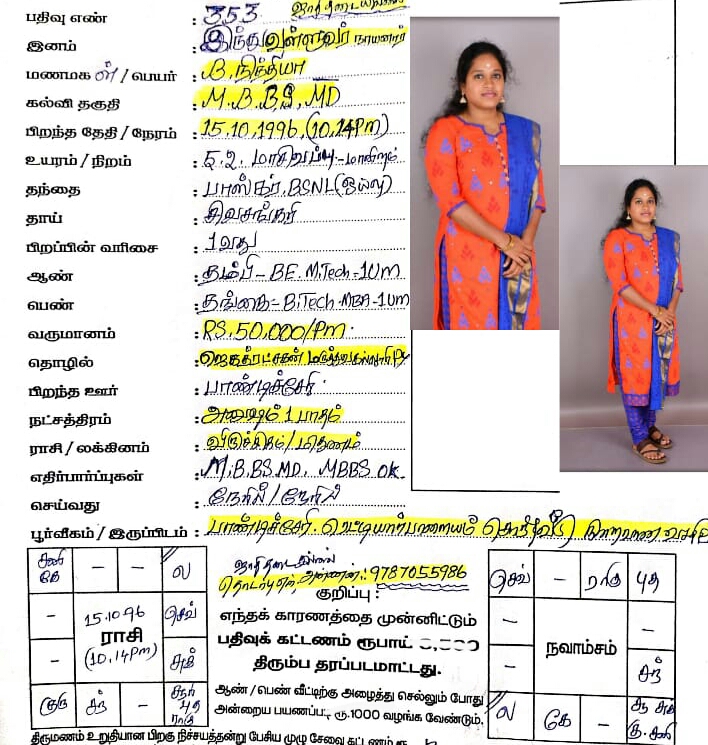 ஜாதி தடையில்லை
பதிவு எண் : 353
இனம் : இந்து வள்ளுவர் நாயனார்
மணமகள் / பெயர் : B. நித்தியா
கல்வி தகுதி : M.B.B.S, MD
பிறந்த தேதி / நேரம் : 15.10.1996, (10.14Pm)
உயரம் / நிறம் : 5.2, மாசிவப்பு - மாநிறம்
தந்தை : பாஸ்கர், BSNL (ஓய்வு)
தாய் : சிவசங்கரி
பிறப்பின் வரிசை : 1வது
ஆண் : தம்பி - BE. M.Tech - 1Um
பெண் : தங்கை - B.Tech. MBA - 1Um
வருமானம் : RS. 50,000/Pm.
தொழில் : ஜெகத்ரட்சகன் மருத்துவ கல்லூரி, Py
பிறந்த ஊர் : பாண்டிச்சேரி.
நட்சத்திரம் : அனுஷம் 1 பாதம்
ராசி / லக்கினம் : விருச்சிகம் / மிதுனம்
எதிர்பார்ப்புகள் : M.B.BS.MD. MBBS OK.
செய்வது : நேரில் / நேரில்
பூர்வீகம் / இருப்பிடம் : பாண்டிச்சேரி. ரெட்டியார்பாளையம்
சனி கே – – ல
– செவ்
– சுக்
குரு சந் – சூரி புத ராகு
15.10.96
ராசி
(10.14Pm)
ஜாதி தடை இல்லை
தொடர்பு எண், அண்ணன்: 9787055986
குறிப்பு :
எந்தக் காரணத்தை முன்னிட்டும்
பதிவுக் கட்டணம் ரூபாய்
திரும்ப தரப்படமாட்டது.
ஆண் / பெண் வீட்டிற்கு அழைத்து செல்லும் போது
அன்றைய பயணப்படி ரூ.1000 வழங்க வேண்டும்.
செவ் – ராகு புத
– –
– சந்
ல கே –
நவாம்சம்
திருமணம் உறுதியான பிறகு நிச்சயத்தன்று பேசிய முழு சேவை கட்டணம்